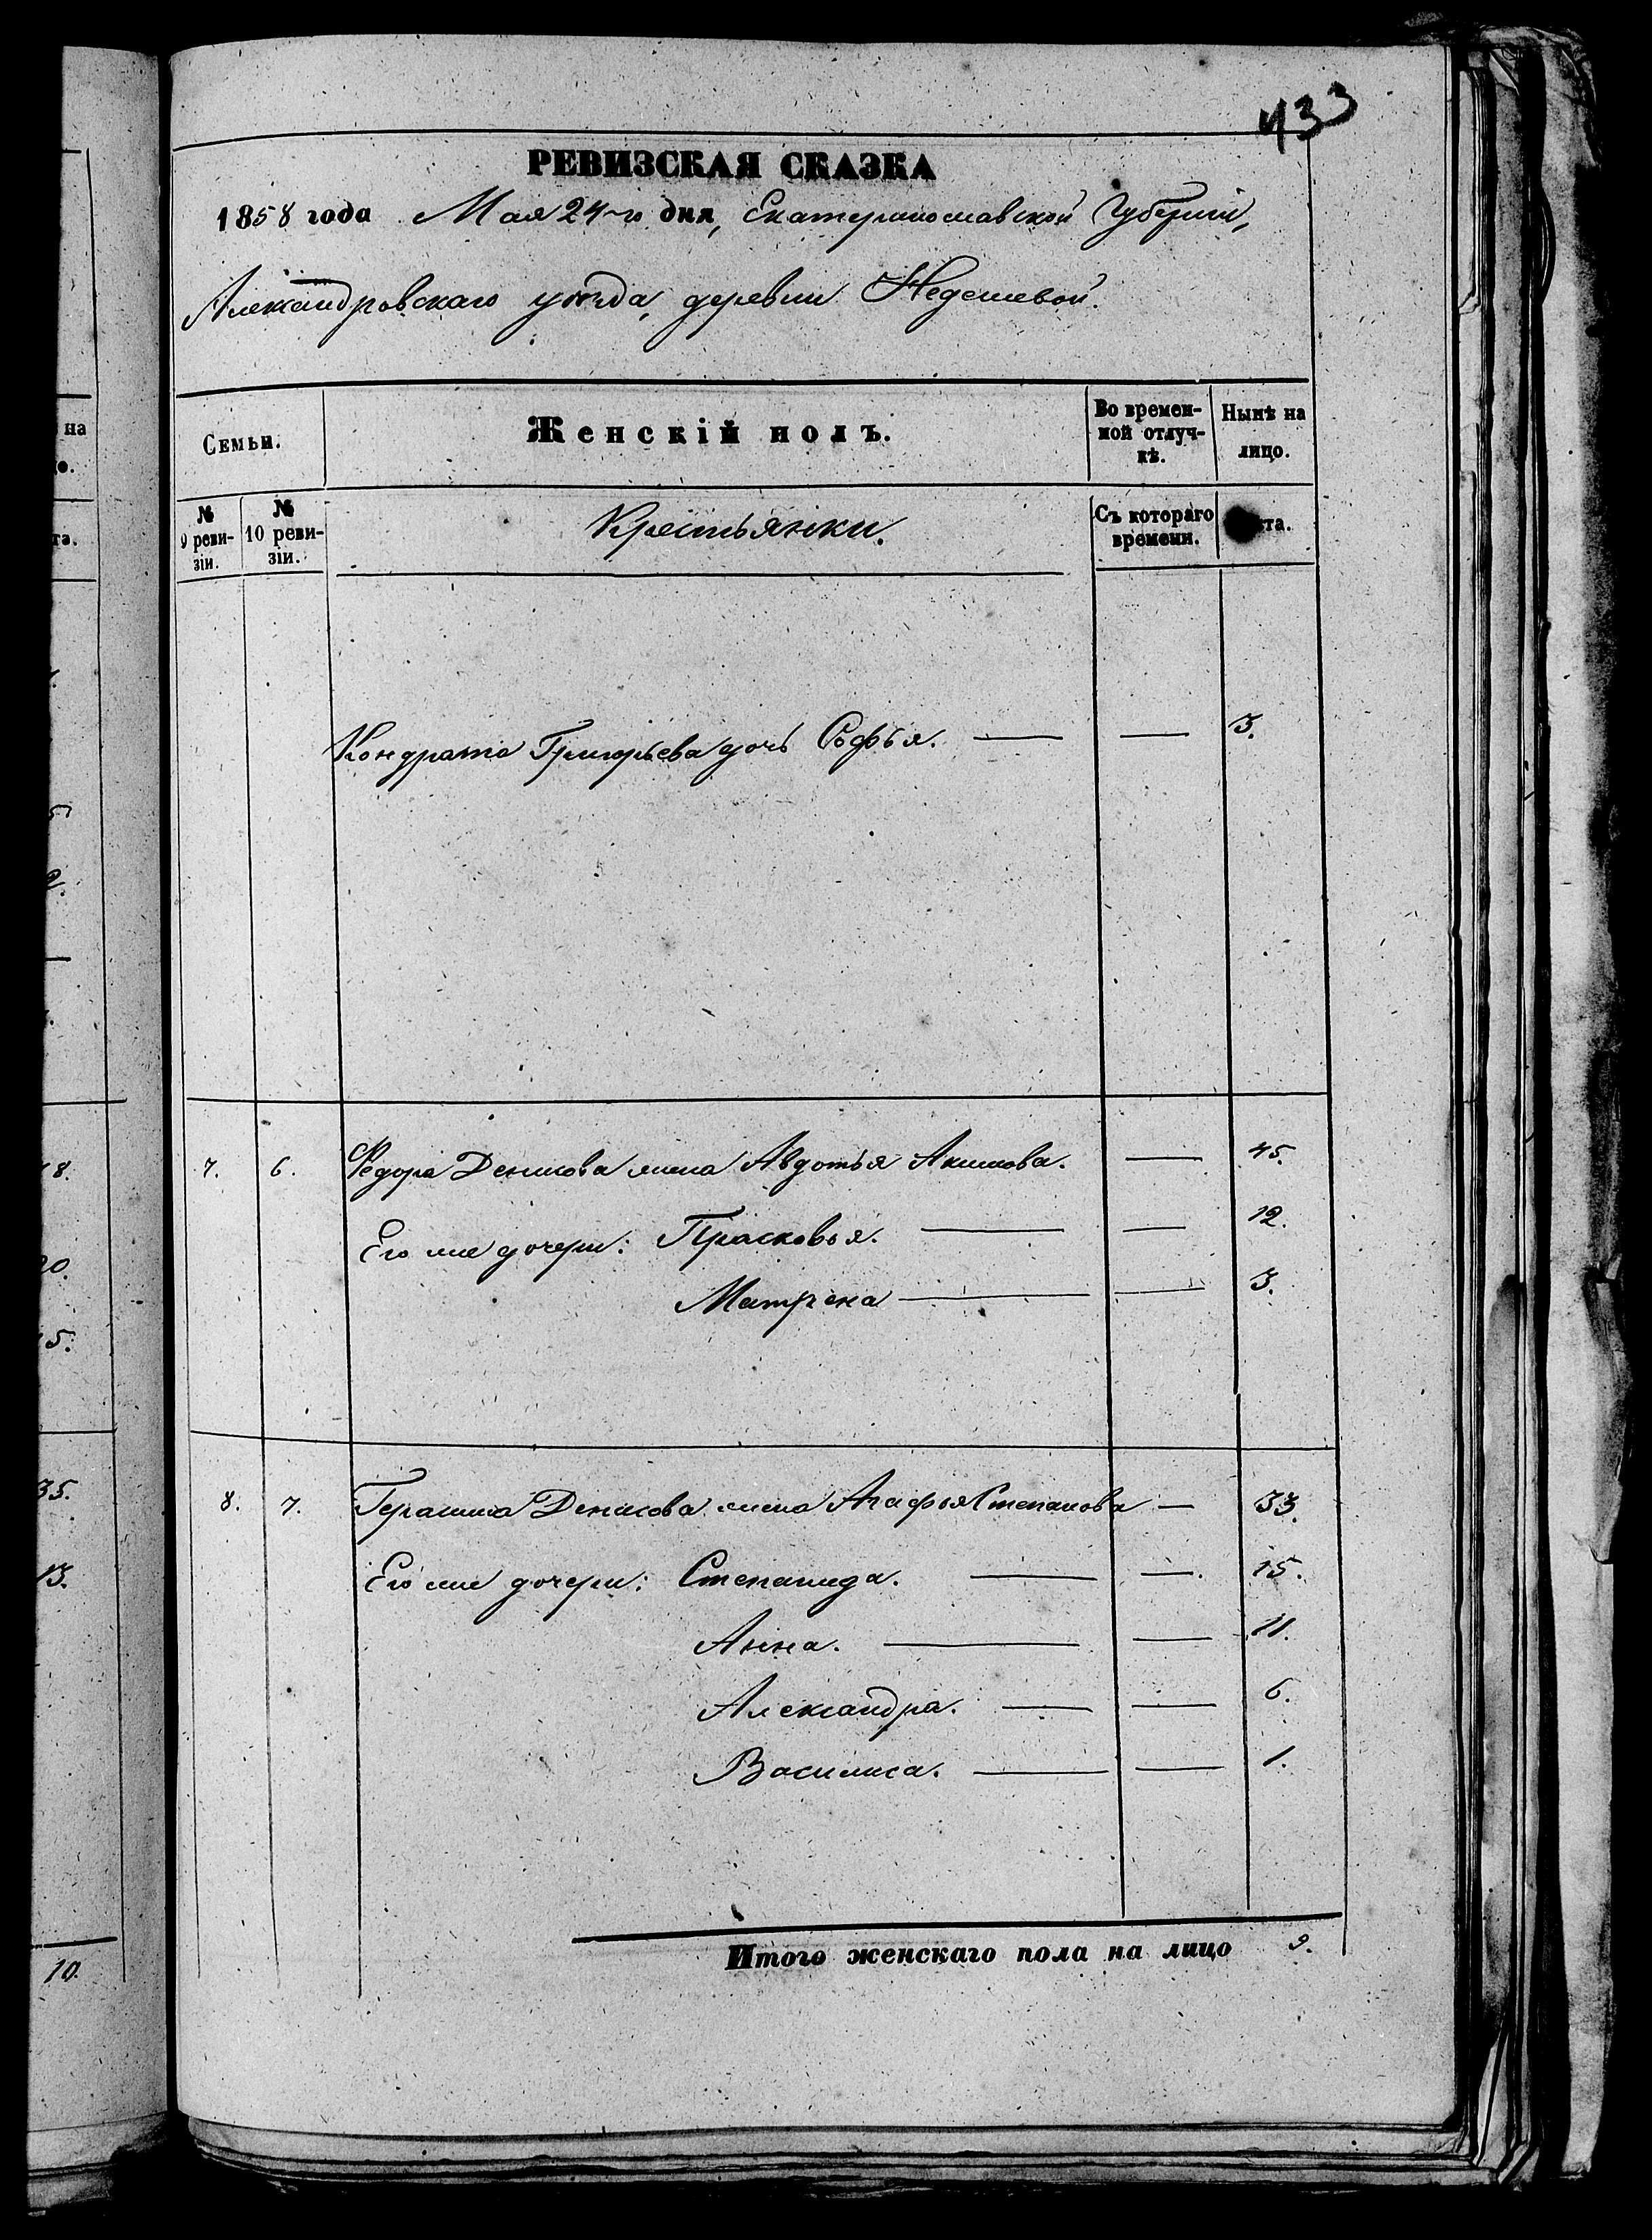 433
РЕВИЗСКАЯ СКАЗКА
1858 года Мая 24-го дня, Екатеринославской Губерніи,
Александровскаго уѣзда, деревни Недешевой.
Семьи.
Женскій полъ.
Во времен-
ной отлуч-
кѣ.
Нынѣ на
лицо.
№
9 реви-
зіи.
№
10 реви-
зіи.
Крестьянки.
Съ котораго
времени.
Кондрата Григорьева дочь Софья. — — 3.
7. 6. Федора Денисова жена Авдотья Акимова. — 45.
Его же дочери: Прасковья. — — 12.
Матрена — — 3.
8. 7. Герасима Денисова жена Агафья Степанова — 33.
Его же дочери: Степанида. — — 15.
Анна. — — 11.
Александра. — — 6.
Василиса. — — 1.
Итого женскаго пола на лицо 9.
на
18.
35.
13.
10.